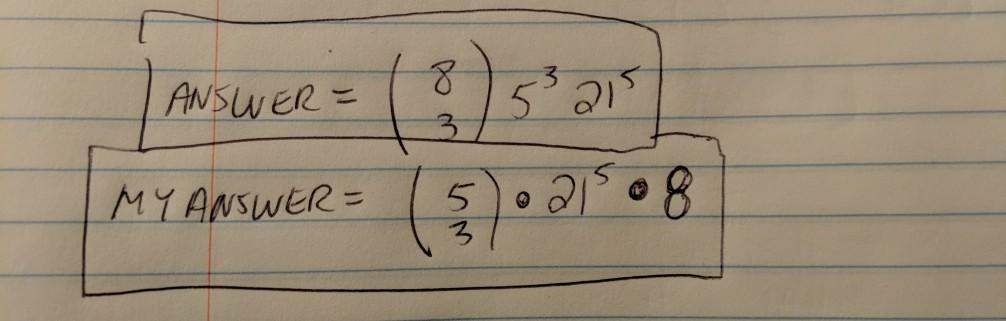 ANSWER = (8 3) 5³ 21⁵
MY ANSWER = (5 3) • 21⁵ • 8